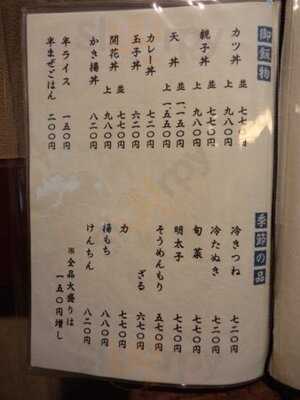 御飯物
カツ丼 並 七七〇円
上 九八〇円
親子丼 並 七七〇円
上 九八〇円
天丼 並 一、一五〇円
上 一、五五〇円
カレー丼 七二〇円
玉子丼 六二〇円
開花丼 並 七七〇円
上 九八〇円
かき揚丼 八二〇円
半ライス 一五〇円
半まぜごはん 二〇〇円
季節の品
冷きつね 七二〇円
冷たぬき 七二〇円
旬菜 七七〇円
明太子 七七〇円
そうめんもり 五七〇円
ざる 六七〇円
力 七七〇円
揚もち 八八〇円
けんちん 八二〇円
※全品大盛りは
一五〇円増し